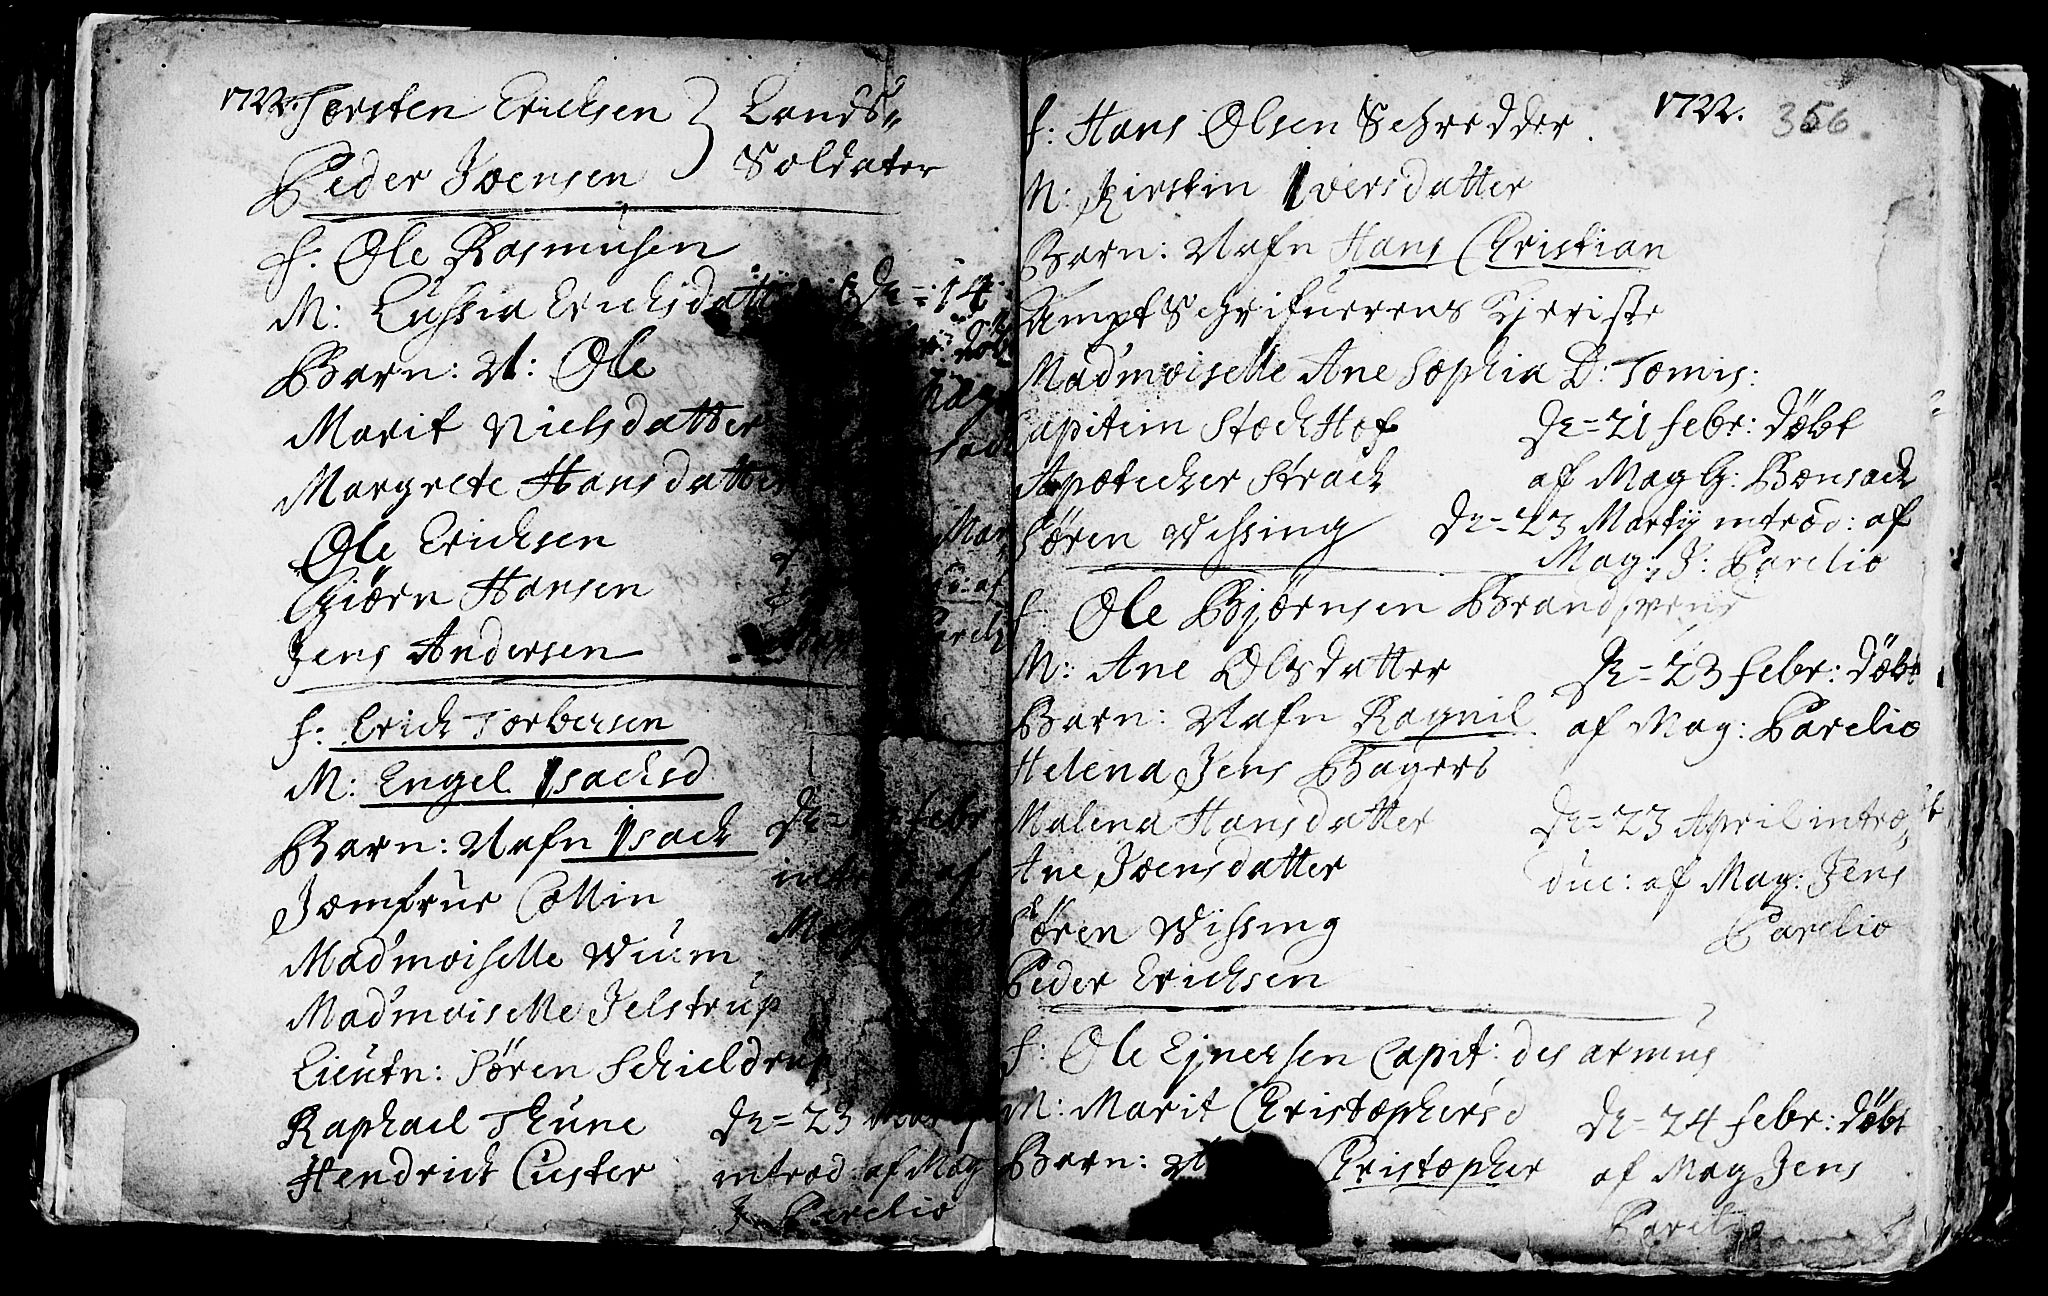 1722. Torsten Erichsen } Lands„
Peder Joensen } Soldater
f: Ole Rasmusen
M: Lussia Erichsdatter De=14
Barn: N: Ole døbt
Marit Nielsdatter
Margrete Hansdatter
Ole Erichsen
Giørn Hansen
Jens Andersen
f: Erich Torbersen
M: Engel Isachsd
Barn: Nafn Isach
Jomfrue Collin
Mad'moiselle Wium
Mad'moiselle Jelstrup
Lieutn: Søren Schieldrup
Raphael Thune
Hendrich Custer
De= febr
introd af
Mag
De=23 Martij
introd: af Mag
J: Parelio
1722. 356
f: Hans Olsen Schredder
M: Kirstin Iversdatter
Barn: Nafn Hans Christian
AmptSchrifuerens Kjeriste
Mad'moiselle Ane Sophia D: Tomis:
Capitein StochHof
Apotecher Strach
Søren Wissing
De=21 febr: døbt
af Mag G: Bonsach
De=23 Martij introd: af
Mag: J: Parelio
f: Ole Bjørnsen Brandsvend
M: Ane Olsdatter
Barn: Nafn Ragnil
Helena Jens Bagers
Malena Hansdatter
Ane Joensdatter
Søren Wissing
Peder Erichsen
De=23 febr: døbt
af Mag: Parelio
De=23 April intro
duc: af Mag: Jens
Parelio
f: Ole Ejnersen Capit: des armus
M: Marit Christophersd
Barn: N Christopher
De=24 febr: døbt
af Mag Jens
Parelio